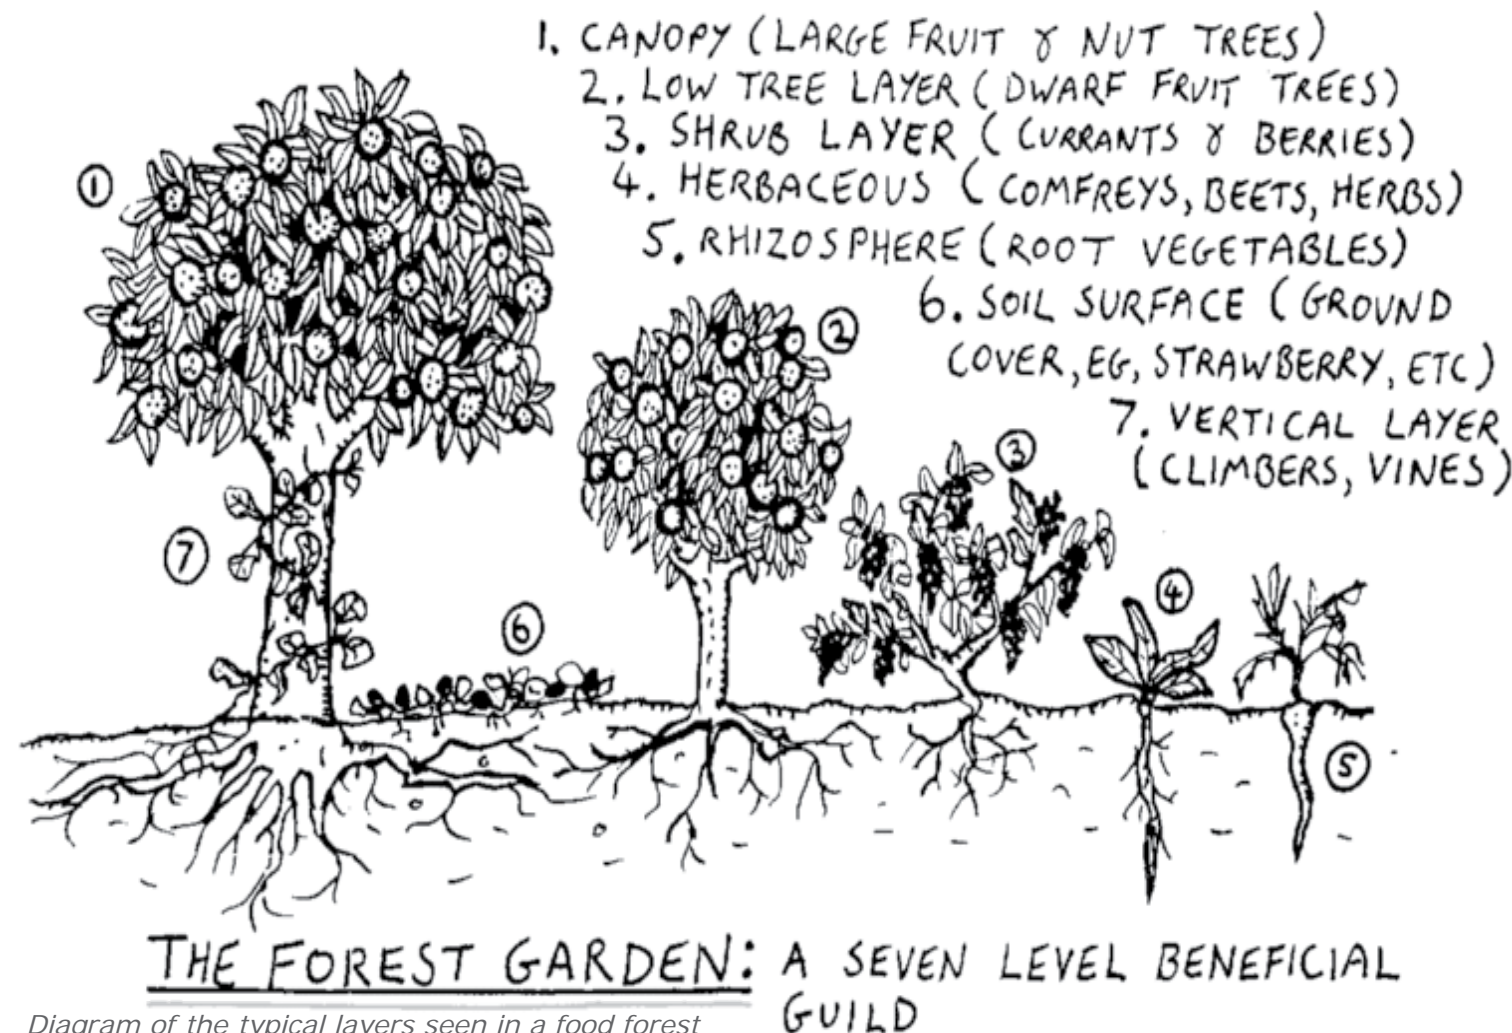 1. CANOPY (LARGE FRUIT & NUT TREES)
2. LOW TREE LAYER (DWARF FRUIT TREES)
3. SHRUB LAYER (CURRANTS & BERRIES)
4. HERBACEOUS (COMFREYS, BEETS, HERBS)
5. RHIZOSPHERE (ROOT VEGETABLES)
6. SOIL SURFACE (GROUND
COVER, EG, STRAWBERRY, ETC)
7. VERTICAL LAYER
(CLIMBERS, VINES)
1
2
3
7
4
6
5
THE FOREST GARDEN: A SEVEN LEVEL BENEFICIAL
GUILD
Diagram of the typical layers seen in a food forest